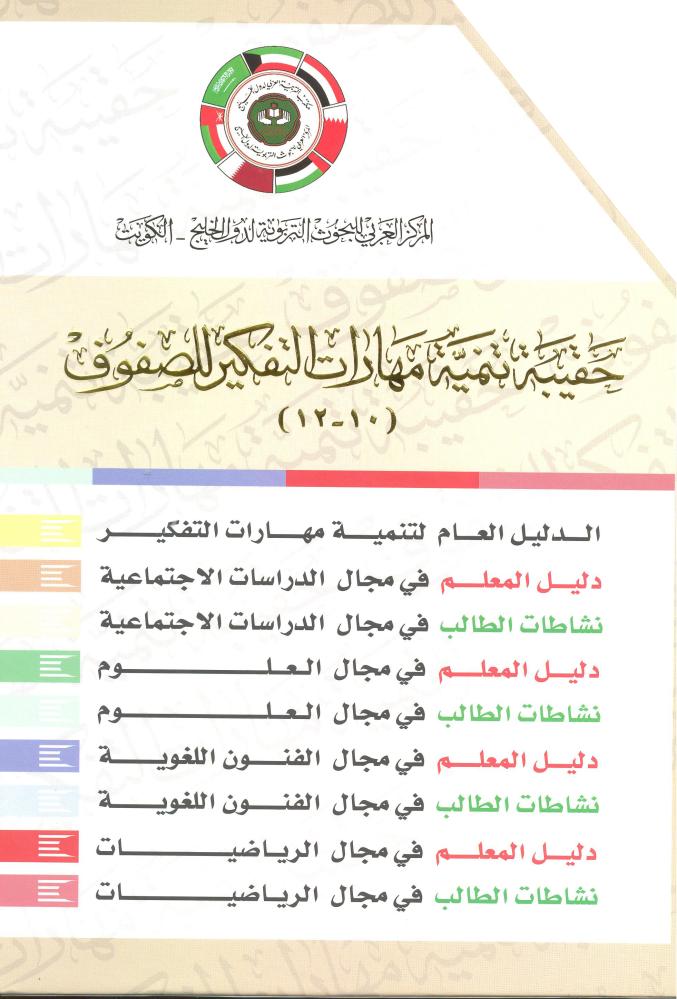 مكتب التربية العربي لدول الخليج
المركز العربي للبحوث التربوية لدول الخليج
المركز العربي للبحوث التربوية لدول الخليج - الكويت
حقيبة تنمية مهارات التفكير للصفوف
(١٠-١٢)
الدليل العام لتنمية مهارات التفكير
دليل المعلم في مجال الدراسات الاجتماعية
نشاطات الطالب في مجال الدراسات الاجتماعية
دليل المعلم في مجال العلوم
نشاطات الطالب في مجال العلوم
دليل المعلم في مجال الفنون اللغوية
نشاطات الطالب في مجال الفنون اللغوية
دليل المعلم في مجال الرياضيات
نشاطات الطالب في مجال الرياضيات